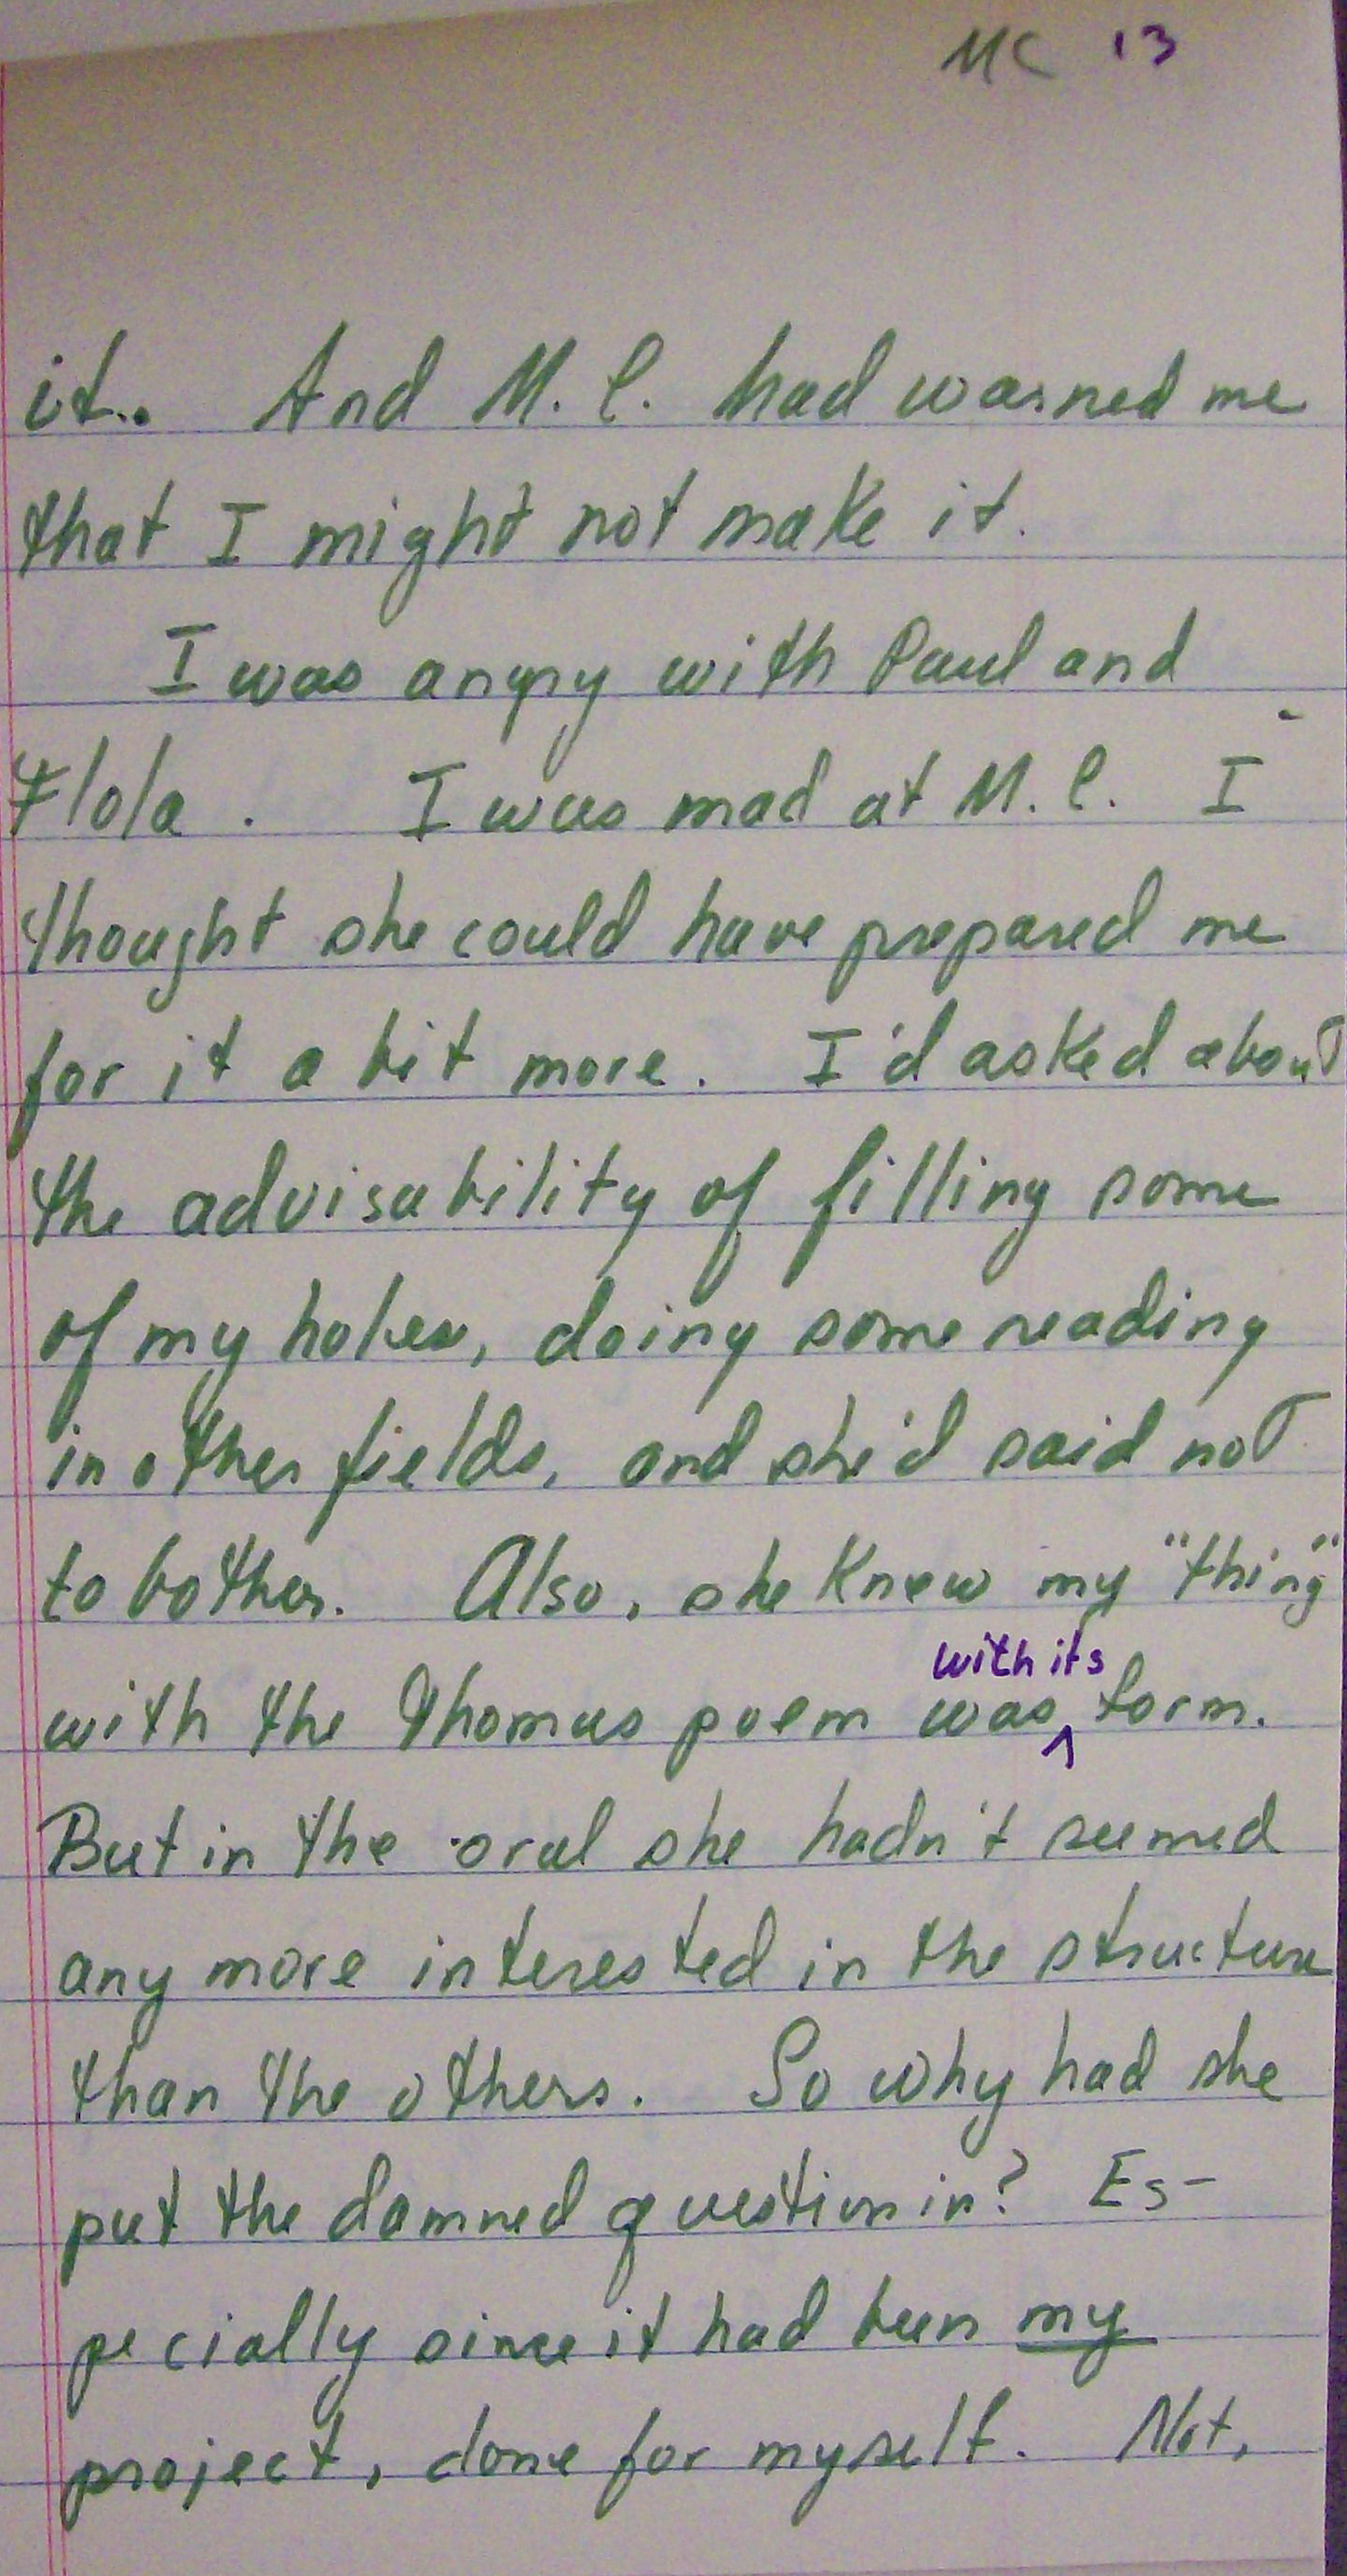 MC 13
it.. And M. C. had warned me
that I might not make it.
I was angry with Paul and
Flola. I was mad at M. C. I
thought she could have prepared me
for it a bit more. I'd asked about
the advisability of filling some
of my holes, doing some reading
in other fields, and she'd said not
to bother. Also, she knew my "thing"
with the Thomas poem was with its form.
But in the oral she hadn't seemed
any more interested in the structure
than the others. So why had she
put the damned question in? Es-
pecially since it had been my
project, done for myself. Not,